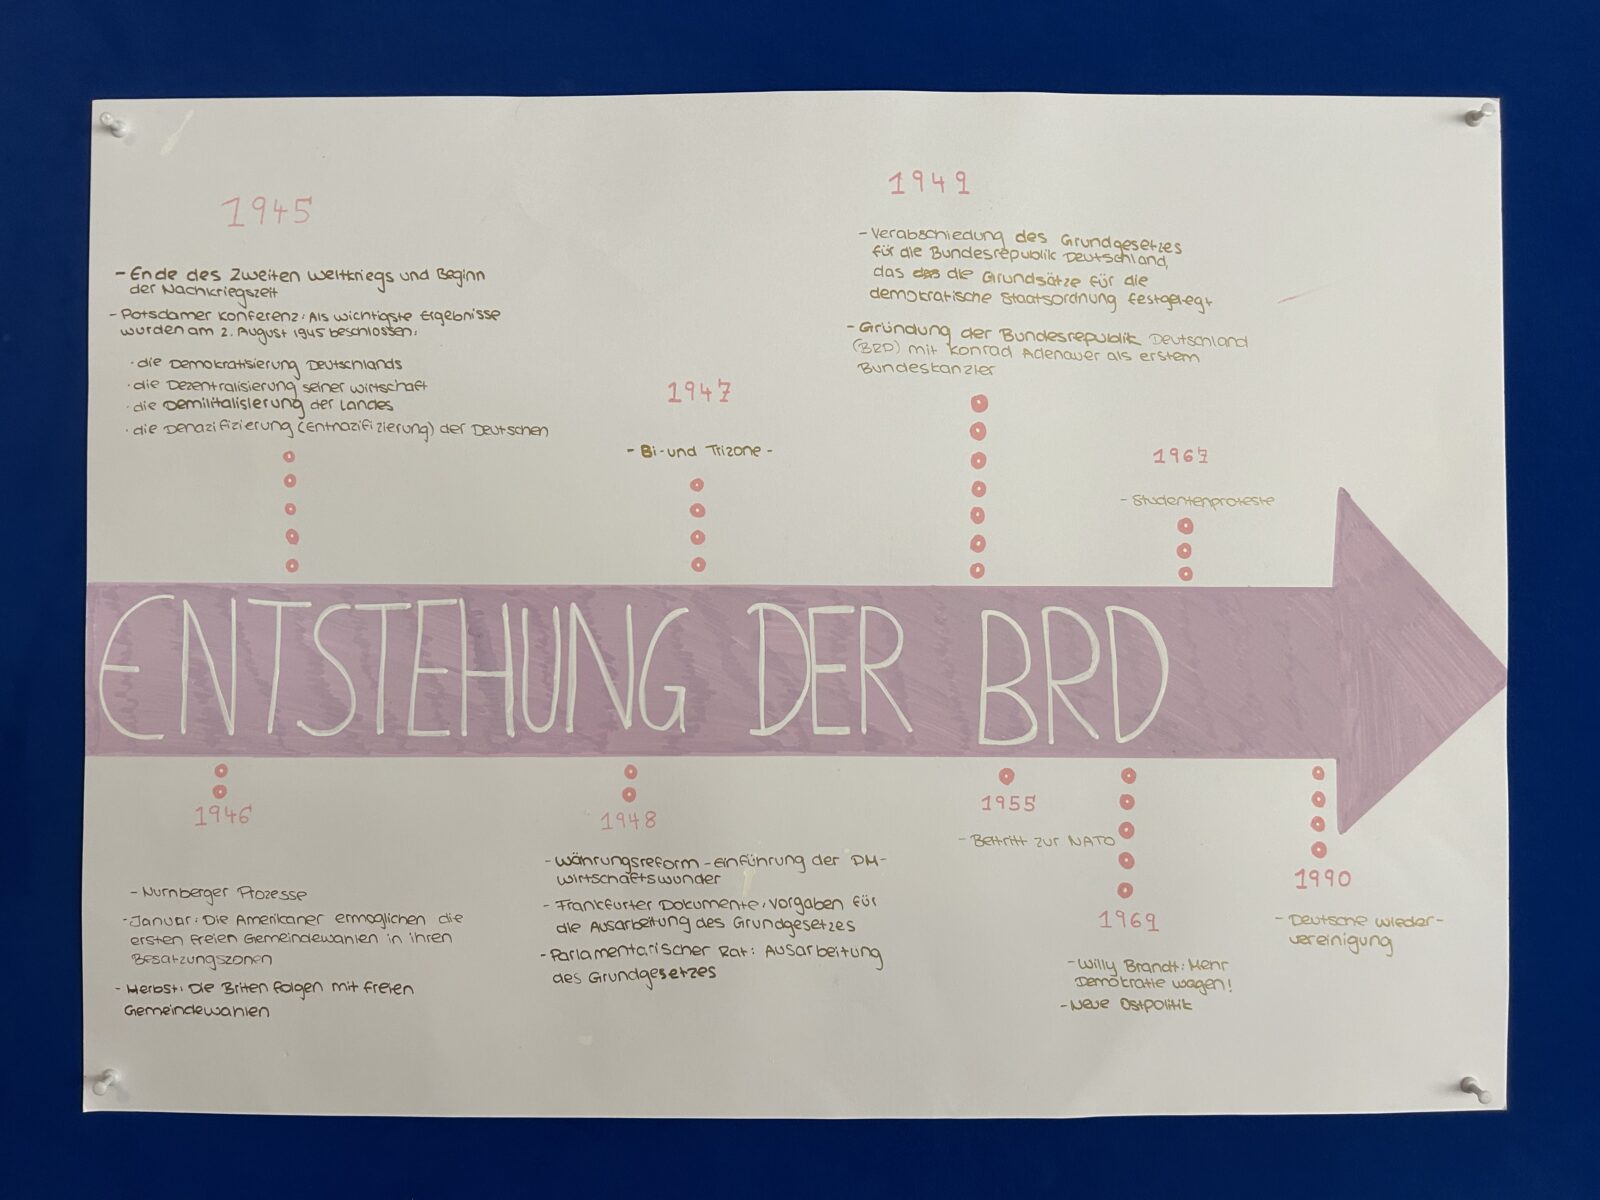 1945
- Ende des Zweiten Weltkriegs und Beginn
der Nachkriegszeit
- Potsdamer Konferenz: Als wichtigste Ergebnisse
wurden am 2. August 1945 beschlossen:
· die Demokratisierung Deutschlands
· die Dezentralisierung seiner Wirtschaft
· die Demilitalisierung der Landes
· die Denazifizierung (Entnazifizierung) der Deutschen
1947
- Bi- und Trizone -
1949
- Verabschiedung des Grundgesetzes
für die Bundesrepublik Deutschland,
das das die Grundsätze für die
demokratische Staatsordnung festgelegt
- Gründung der Bundesrepublik Deutschland
(BRD) mit Konrad Adenauer als erstem
Bundeskanzler
1967
- Studentenproteste
ENTSTEHUNG DER BRD
1946
- Nürnberger Prozesse
- Januar: Die Amerikaner ermöglichen die
ersten freien Gemeindewahlen in ihren
Besatzungszonen
- Herbst: Die Briten folgen mit freien
Gemeindewahlen
1948
- Währungsreform - Einführung der DM -
Wirtschaftswunder
- Frankfurter Dokumente: Vorgaben für
die Ausarbeitung des Grundgesetzes
- Parlamentarischer Rat: Ausarbeitung
des Grundgesetzes
1955
- Beitritt zur NATO
1969
- Willy Brandt: Mehr
Demokratie wagen!
- Neue Ostpolitik
1990
- Deutsche Wieder-
vereinigung